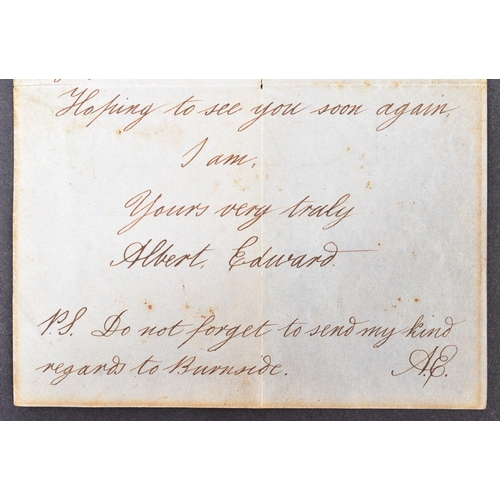 Hoping to see you soon again,
I am,
Yours very truly
Albert. Edward.
P.S. Do not forget to send my kind
regards to Burnside. A.E.